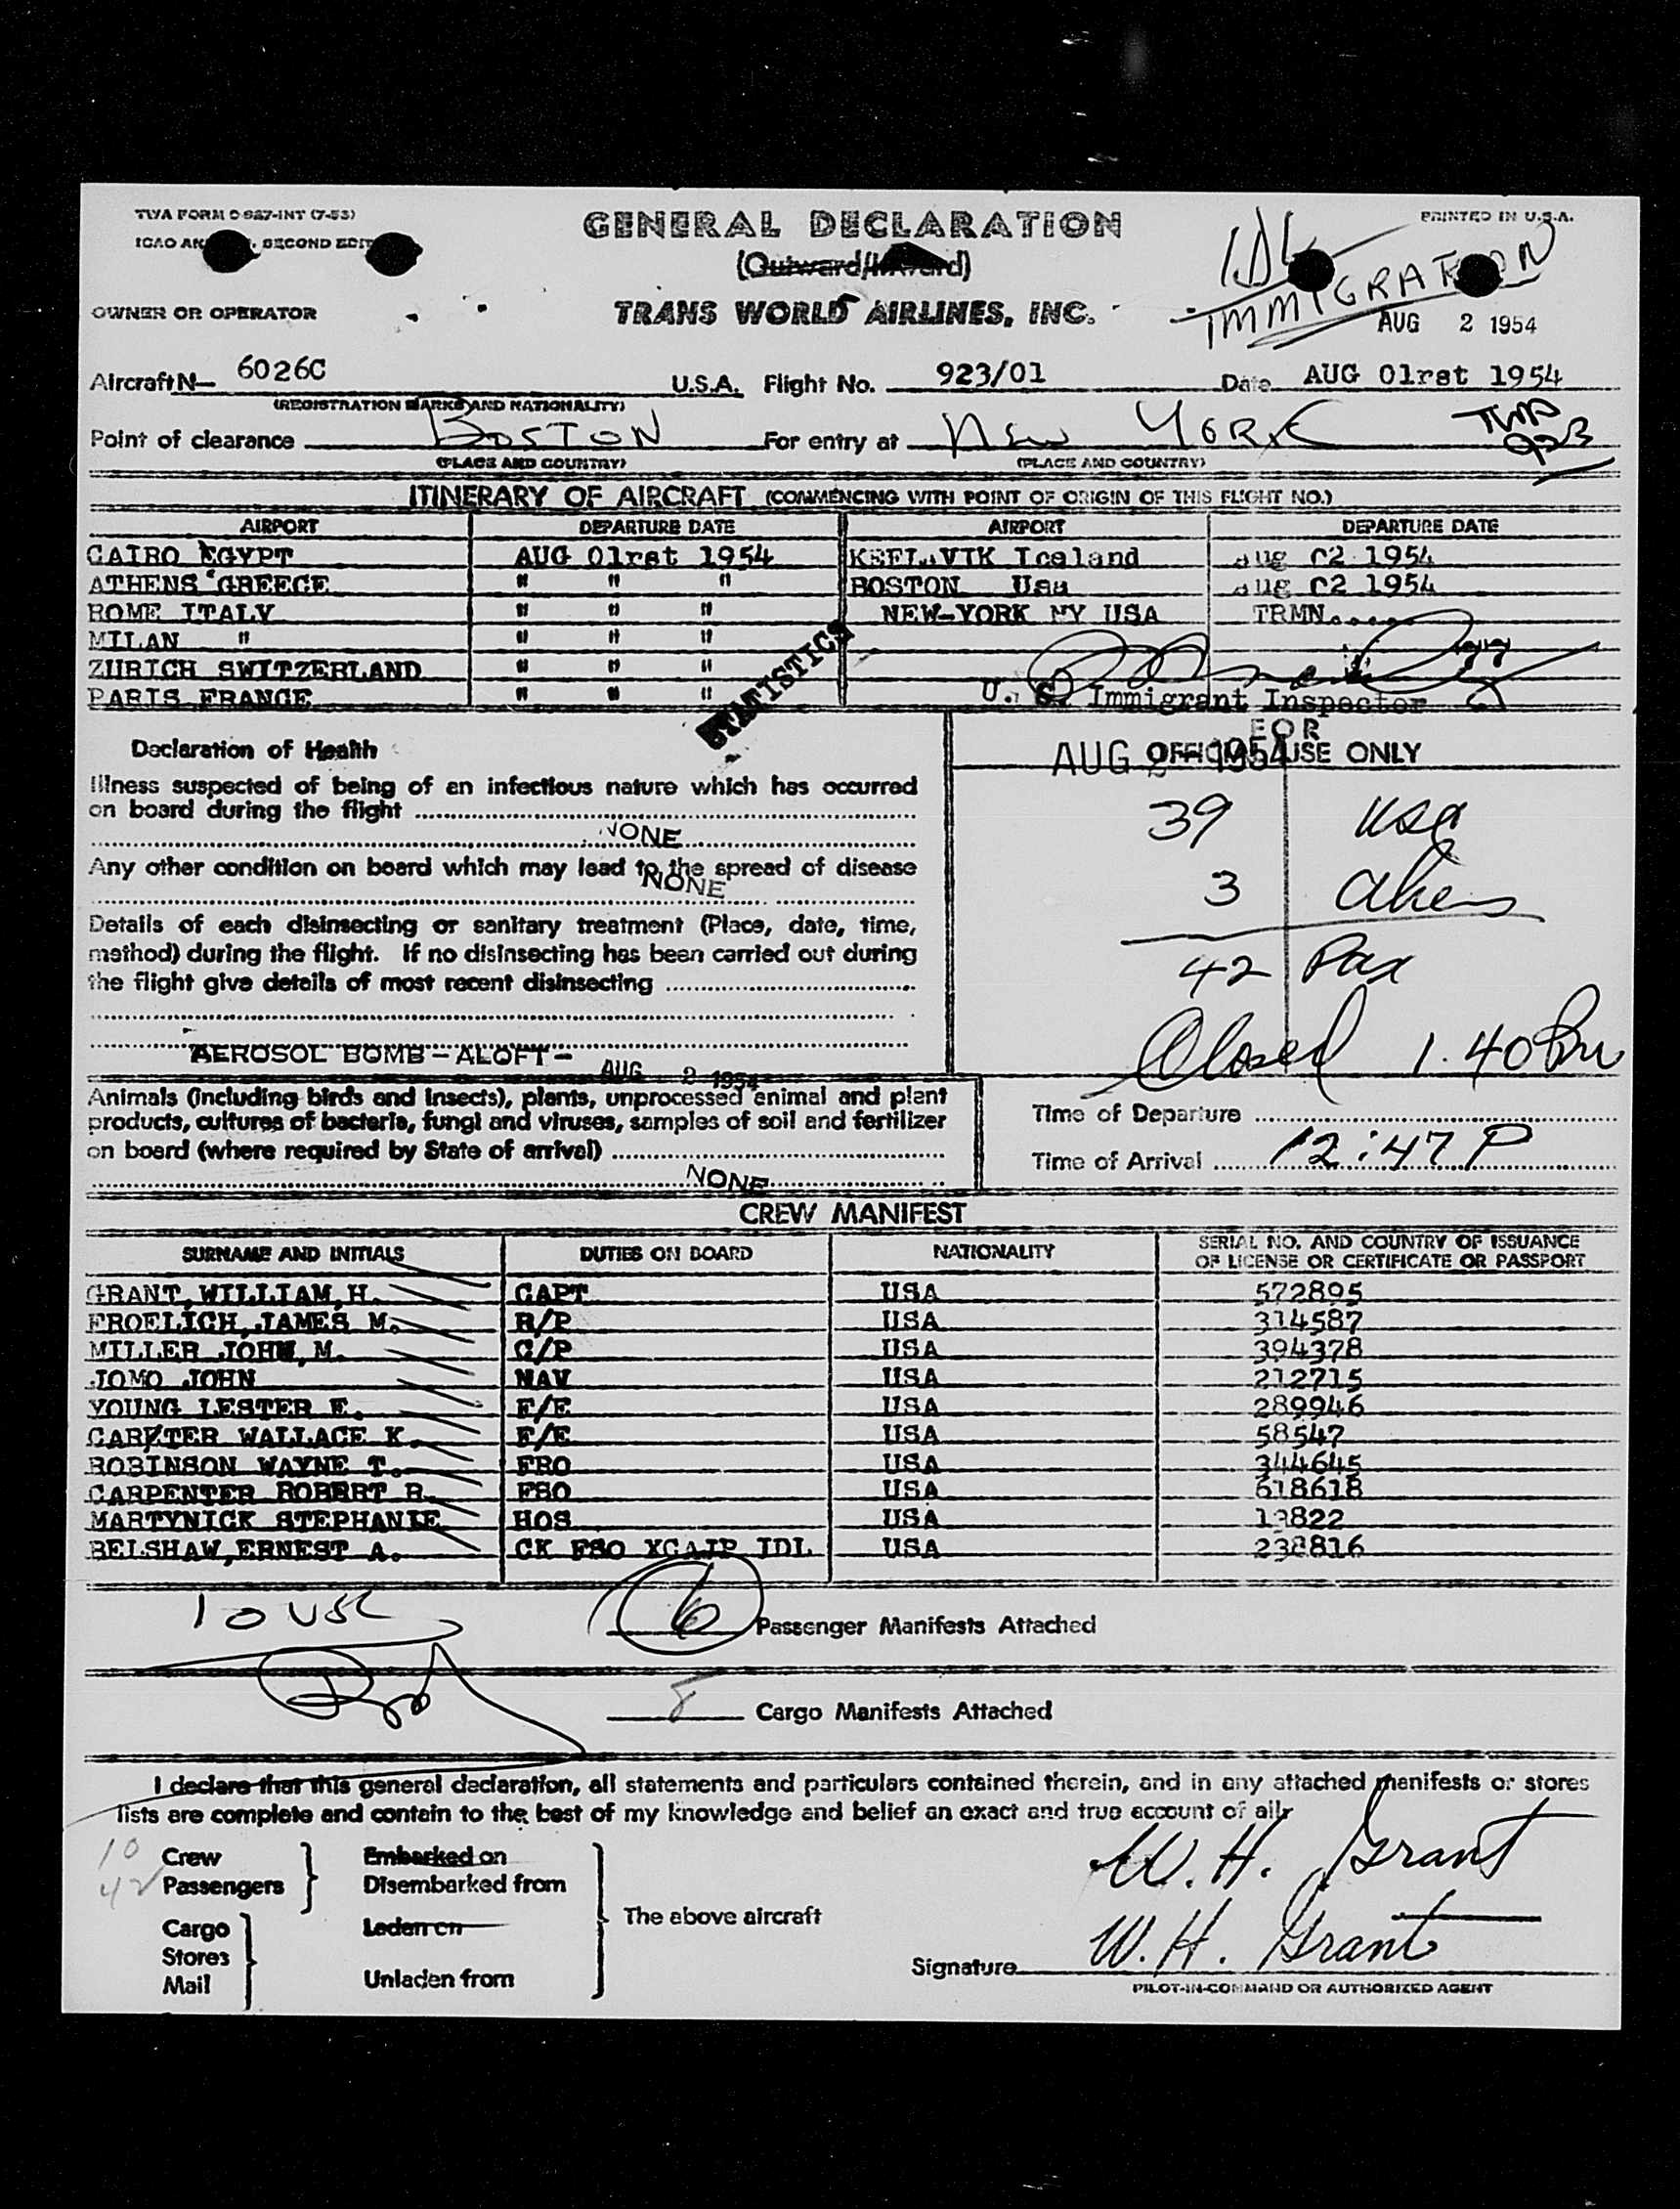 TWA FORM O-927-INT (7-53)
PRINTED IN U.S.A.
GENERAL DECLARATION
ICAO SECOND
(Outward/Inward)
IDL
IMMIGRATION
OWNER OR OPERATOR
TRANS WORLD AIRLINES, INC.
AUG 2 1954
Aircraft N— 6026C U.S.A. Flight No. 923/01 Date AUG 01rst 1954
(REGISTRATION MARKS AND NATIONALITY)
Point of clearance BOSTON For entry at NEW YORK TWA 923
(PLACE AND COUNTRY) (PLACE AND COUNTRY)
ITINERARY OF AIRCRAFT (COMMENCING WITH POINT OF ORIGIN OF THIS FLIGHT NO.)
AIRPORT DEPARTURE DATE AIRPORT DEPARTURE DATE
CAIRO EGYPT AUG 01rst 1954 KEFLAVIK Iceland Aug 02 1954
ATHENS GREECE " " " BOSTON Usa Aug 02 1954
ROME ITALY " " " NEW-YORK NY USA TRMN.....
MILAN " " " "
ZURICH SWITZERLAND " " "
PARIS FRANCE " " " U. S. Immigrant Inspector
STATISTICS
FOR
Declaration of Health
AUG 2 - 1954 OFFICIAL USE ONLY
Illness suspected of being of an infectious nature which has occurred
on board during the flight
NONE
39 USC
Any other condition on board which may lead to the spread of disease
NONE
3 Aliens
Details of each disinsecting or sanitary treatment (Place, date, time,
method) during the flight. If no disinsecting has been carried out during
the flight give details of most recent disinsecting
42 Pax
AEROSOL BOMB - ALOFT -
AUG 2 1954
Closed 1.40 Pm
Animals (including birds and insects), plants, unprocessed animal and plant
products, cultures of bacteria, fungi and viruses, samples of soil and fertilizer
on board (where required by State of arrival)
NONE
Time of Departure
Time of Arrival 12:47 P
CREW MANIFEST
SURNAME AND INITIALS DUTIES ON BOARD NATIONALITY SERIAL NO. AND COUNTRY OF ISSUANCE
OF LICENSE OR CERTIFICATE OR PASSPORT
GRANT, WILLIAM, H. CAPT USA 572895
FROELICH, JAMES M. R/P USA 314587
MILLER JOHN, M. C/P USA 394378
JOMO JOHN NAV USA 212715
YOUNG LESTER E. F/E USA 289946
CARTER WALLACE K. F/E USA 58547
ROBINSON WAYNE T. FRO USA 344645
CARPENTER ROBERT R. FSO USA 618618
MARTYNICK STEPHANIE HOS USA 13822
BELSHAW, ERNEST A. CK FSO XCAIP IDL USA 238816
10 USC
6 Passenger Manifests Attached
8 Cargo Manifests Attached
I declare that this general declaration, all statements and particulars contained therein, and in any attached manifests or stores
lists are complete and contain to the best of my knowledge and belief an exact and true account of all
10 Crew
42 Passengers
Cargo
Stores
Mail
Embarked on
Disembarked from
Laden on
Unladen from
The above aircraft
W. H. Grant
Signature W. H. Grant
PILOT-IN-COMMAND OR AUTHORIZED AGENT